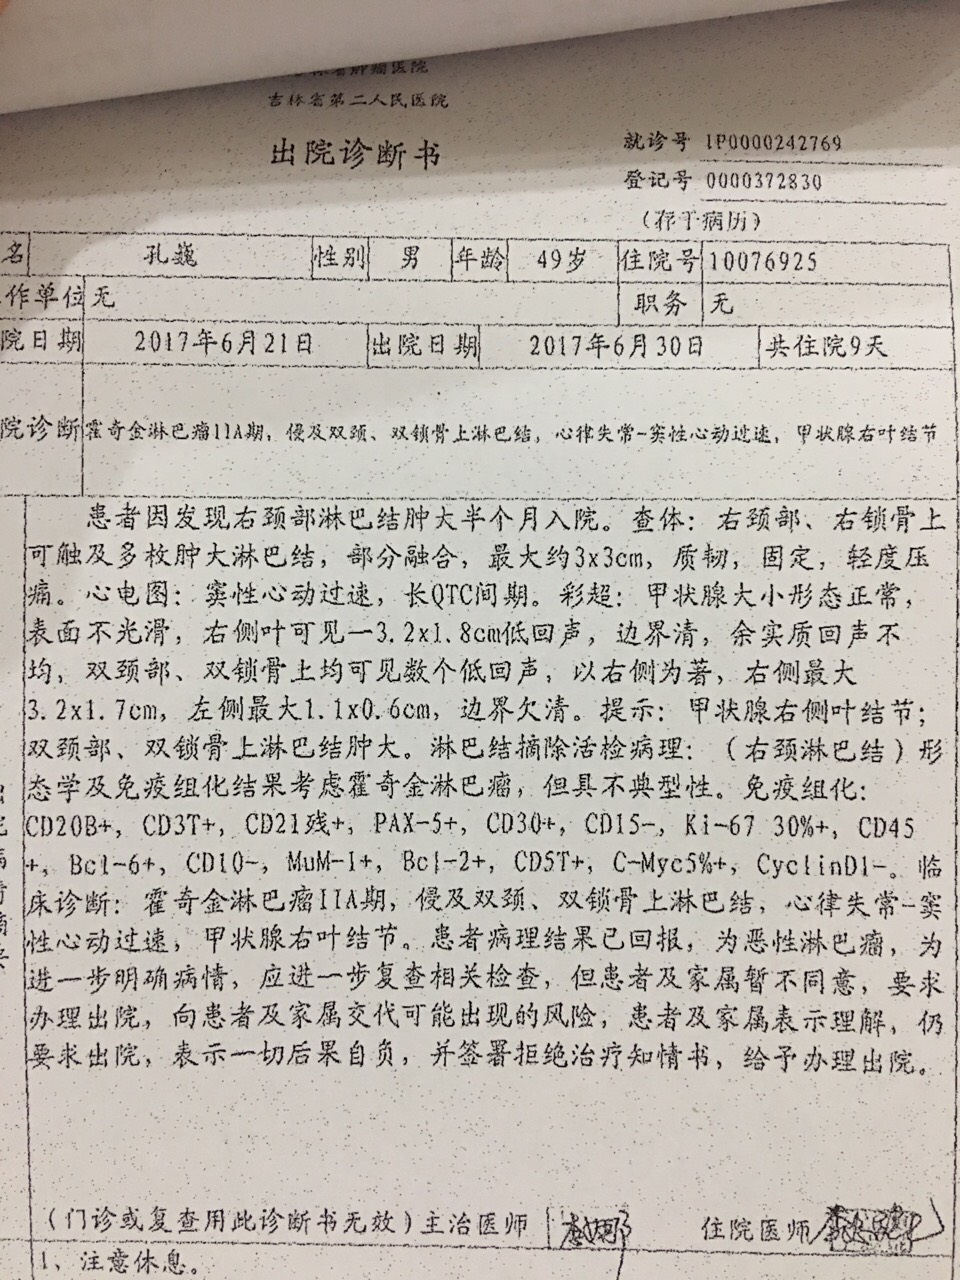 吉林省肿瘤医院
吉林省第二人民医院
出院诊断书
就诊号 IP0000242769
登记号 0000372830
（存于病历）
名 孔巍 性别 男 年龄 49岁 住院号 10076925
作单位 无 职务 无
院日期 2017年6月21日 出院日期 2017年6月30日 共住院9天
院诊断 霍奇金淋巴瘤IIA期，侵及双颈、双锁骨上淋巴结，心律失常-窦性心动过速，甲状腺右叶结节
患者因发现右颈部淋巴结肿大半个月入院。查体：右颈部、右锁骨上
可触及多枚肿大淋巴结，部分融合，最大约3x3cm，质韧，固定，轻度压
痛。心电图：窦性心动过速，长QTC间期。彩超：甲状腺大小形态正常，
表面不光滑，右侧叶可见一3.2x1.8cm低回声，边界清，余实质回声不
均，双颈部、双锁骨上均可见数个低回声，以右侧为著，右侧最大
3.2x1.7cm，左侧最大1.1x0.6cm，边界欠清。提示：甲状腺右侧叶结节；
双颈部、双锁骨上淋巴结肿大。淋巴结摘除活检病理：（右颈淋巴结）形
态学及免疫组化结果考虑霍奇金淋巴瘤，但具不典型性。免疫组化：
CD20B+，CD3T+，CD21残+，PAX-5+，CD30+，CD15-，Ki-67 30%+，CD45
+，Bcl-6+，CD10-，MuM-1+，Bcl-2+，CD5T+，C-Myc5%+，CyclinD1-。临
床诊断：霍奇金淋巴瘤IIA期，侵及双颈、双锁骨上淋巴结，心律失常-窦
性心动过速，甲状腺右叶结节。患者病理结果已回报，为恶性淋巴瘤，为
进一步明确病情，应进一步复查相关检查，但患者及家属暂不同意，要求
办理出院，向患者及家属交代可能出现的风险，患者及家属表示理解，仍
要求出院，表示一切后果自负，并签署拒绝治疗知情书，给予办理出院。
（门诊或复查用此诊断书无效）主治医师 住院医师
1、注意休息。